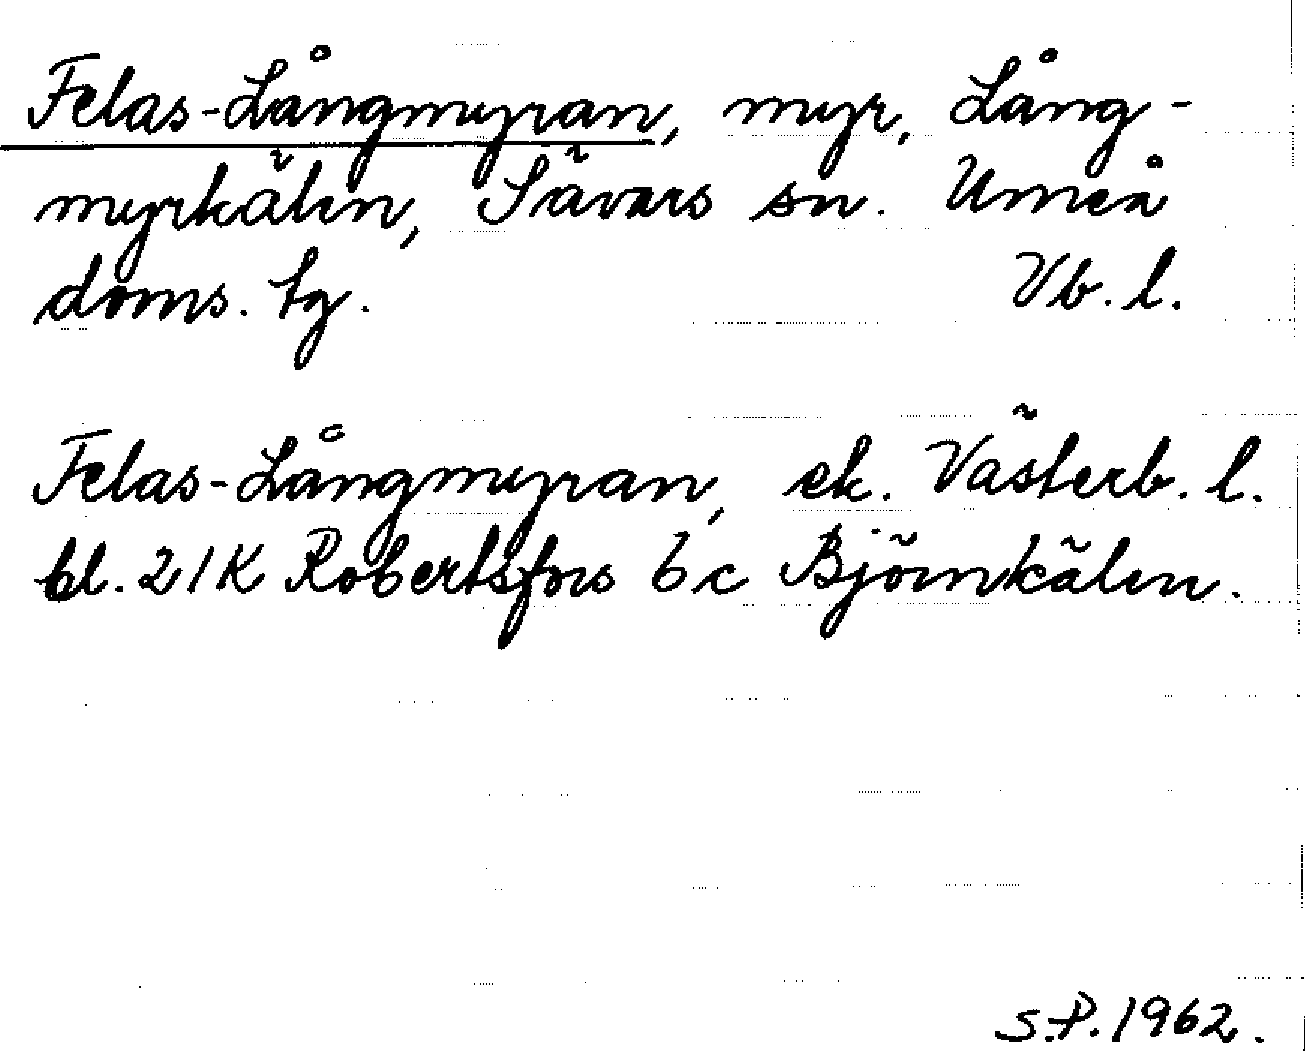 Felas-Långmyran, myr, Lång-
myrkälen, Sävars sn. Umeå
doms. tg. Vb. l.
Felas-Långmyran, ek. Västerb. l.
bl. 21K Robertsfors 6 c Björnkälen.
S.P. 1962.